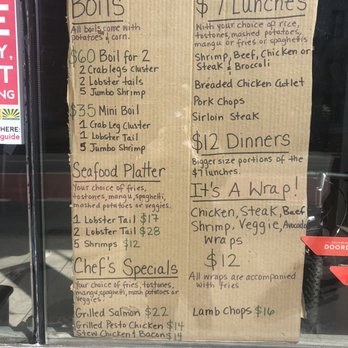 Boils
All boils come with
potatoes & corn.
$60 Boil for 2
2 Crab legs Cluster
2 Lobster tails
5 Jumbo Shrimp
$35 Mini Boil
1 Crab Leg Cluster
1 Lobster Tail
5 Jumbo Shrimp
Seafood Platter
Your choice of fries,
tostones, mangu, spaghetti,
mashed potatoes or veggies.
1 Lobster Tail $17
2 Lobster Tail $28
5 Shrimps $12
Chef's Specials
Your choice of fries, tostones,
mangu, spaghetti, mash potatoes or
veggies
Grilled Salmon $22
Grilled Pesto Chicken $14
Stew Chicken & Bacon $14
$7 Lunches
With your choice of rice,
tostones, mashed potatoes,
mangu or fries or spaghettis
Shrimp, Beef, Chicken or
Steak & Broccoli
Breaded Chicken Cutlet
Pork Chops
Sirloin Steak
$12 Dinners
Bigger size portions of the
$7 lunches.
It's A Wrap!
Chicken, Steak, Beef
Shrimp, Veggie, Avocado
Wraps
$12
All wraps are accompanied
with fries
Lamb Chops $16
HERE:
guide
DOORD